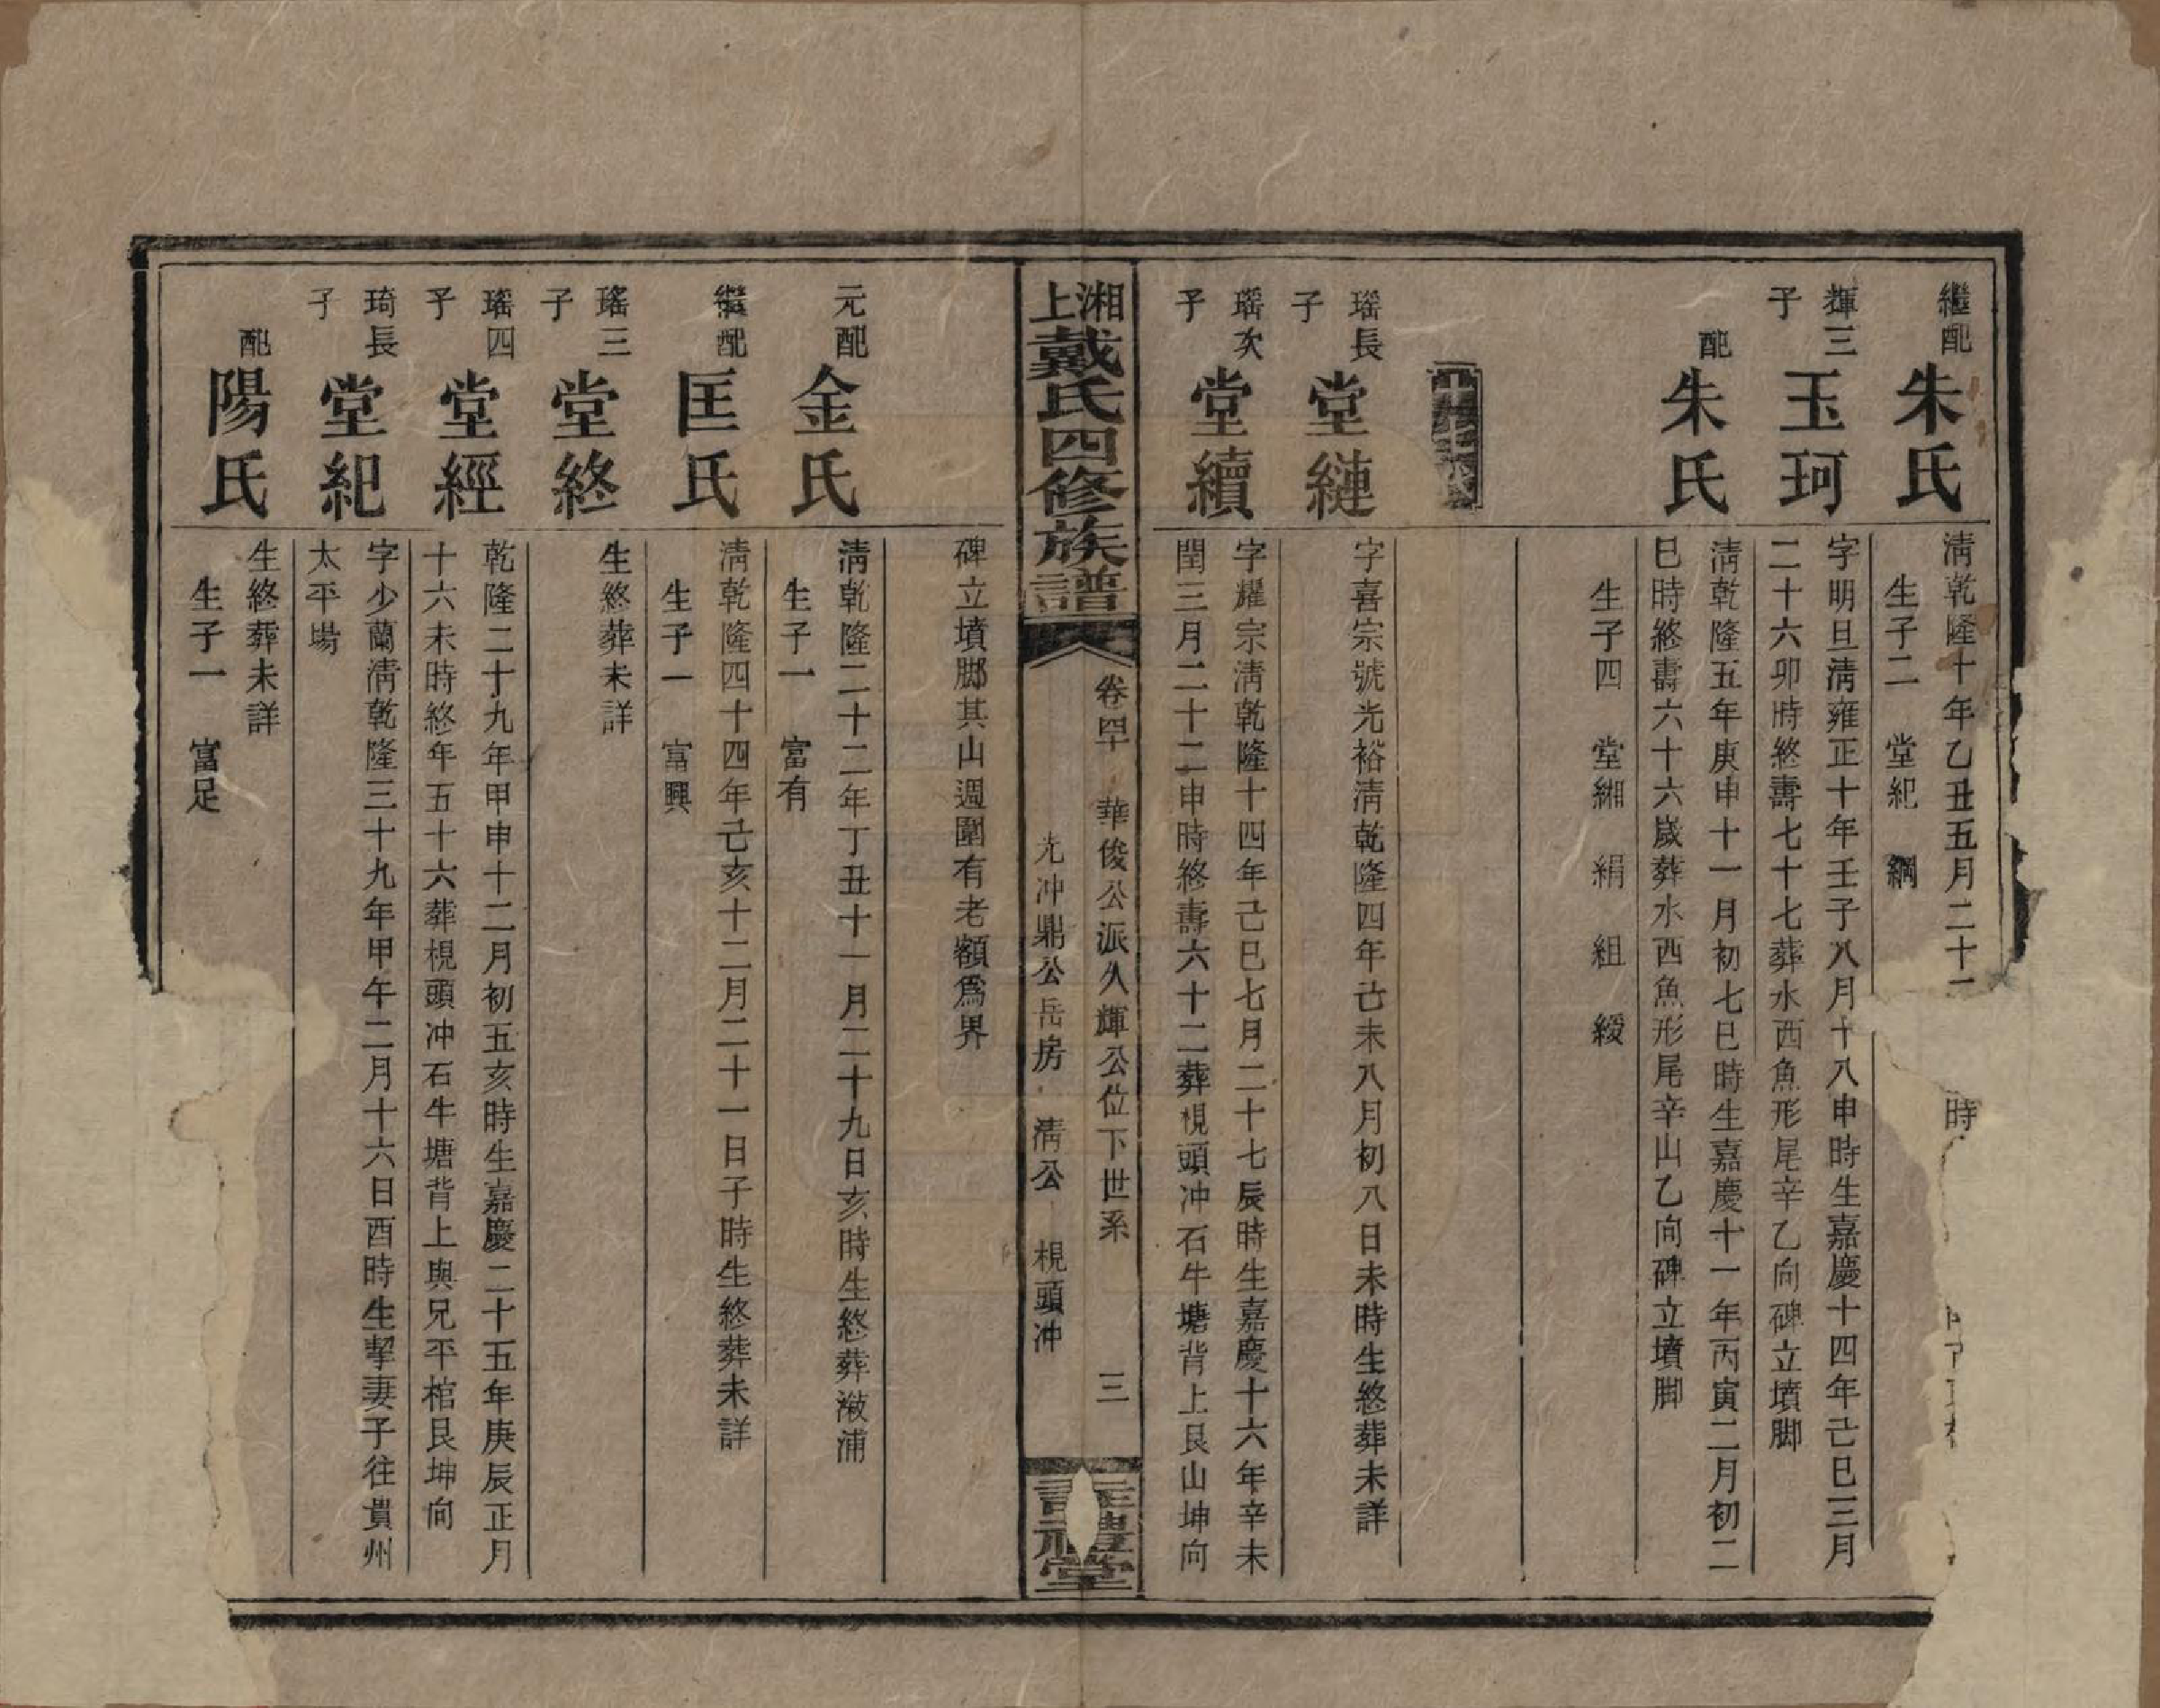 繼配
朱氏
淸乾隆十年乙丑五月二十二
時
生子二　堂紀　綱
輝三
子
玉珂
字明旦淸雍正十年壬子八月十八申時生嘉慶十四年己巳三月
二十六卯時終壽七十七葬水西魚形尾辛乙向碑立墳脚
配
朱氏
淸乾隆五年庚申十一月初七巳時生嘉慶十一年丙寅二月初二
巳時終壽六十六歲葬水西魚形尾辛山乙向碑立墳脚
生子四　堂緗　絹　組　綬
瑤長
子
堂縺
字喜宗號光裕淸乾隆四年己未八月初八日未時生終葬未詳
瑤次
子
堂續
字耀宗淸乾隆十四年己巳七月二十七辰時生嘉慶十六年辛未
閏三月二十二申時終壽六十二葬梘頭冲石牛塘背上艮山坤向
湘上戴氏四修族譜
卷四十　華俊公派久輝公位下世系　三
光冲鼎公岳房　淸公　梘頭冲
註禮堂
碑立墳脚其山週圍有老額爲界
元配
金氏
淸乾隆二十二年丁丑十一月二十九日亥時生終葬漵浦
生子一　富有
繼配
匡氏
淸乾隆四十四年己亥十二月二十一日子時生終葬未詳
生子一　富興
瑤三
子
堂終
生終葬未詳
瑤四
子
堂經
乾隆二十九年甲申十二月初五亥時生嘉慶二十五年庚辰正月
十六未時終年五十六葬梘頭冲石牛塘背上與兄平棺艮坤向
琦長
子
堂紀
字少蘭淸乾隆三十九年甲午二月十六日酉時生挈妻子往貴州
太平場
配
陽氏
生終葬未詳
生子一　富足